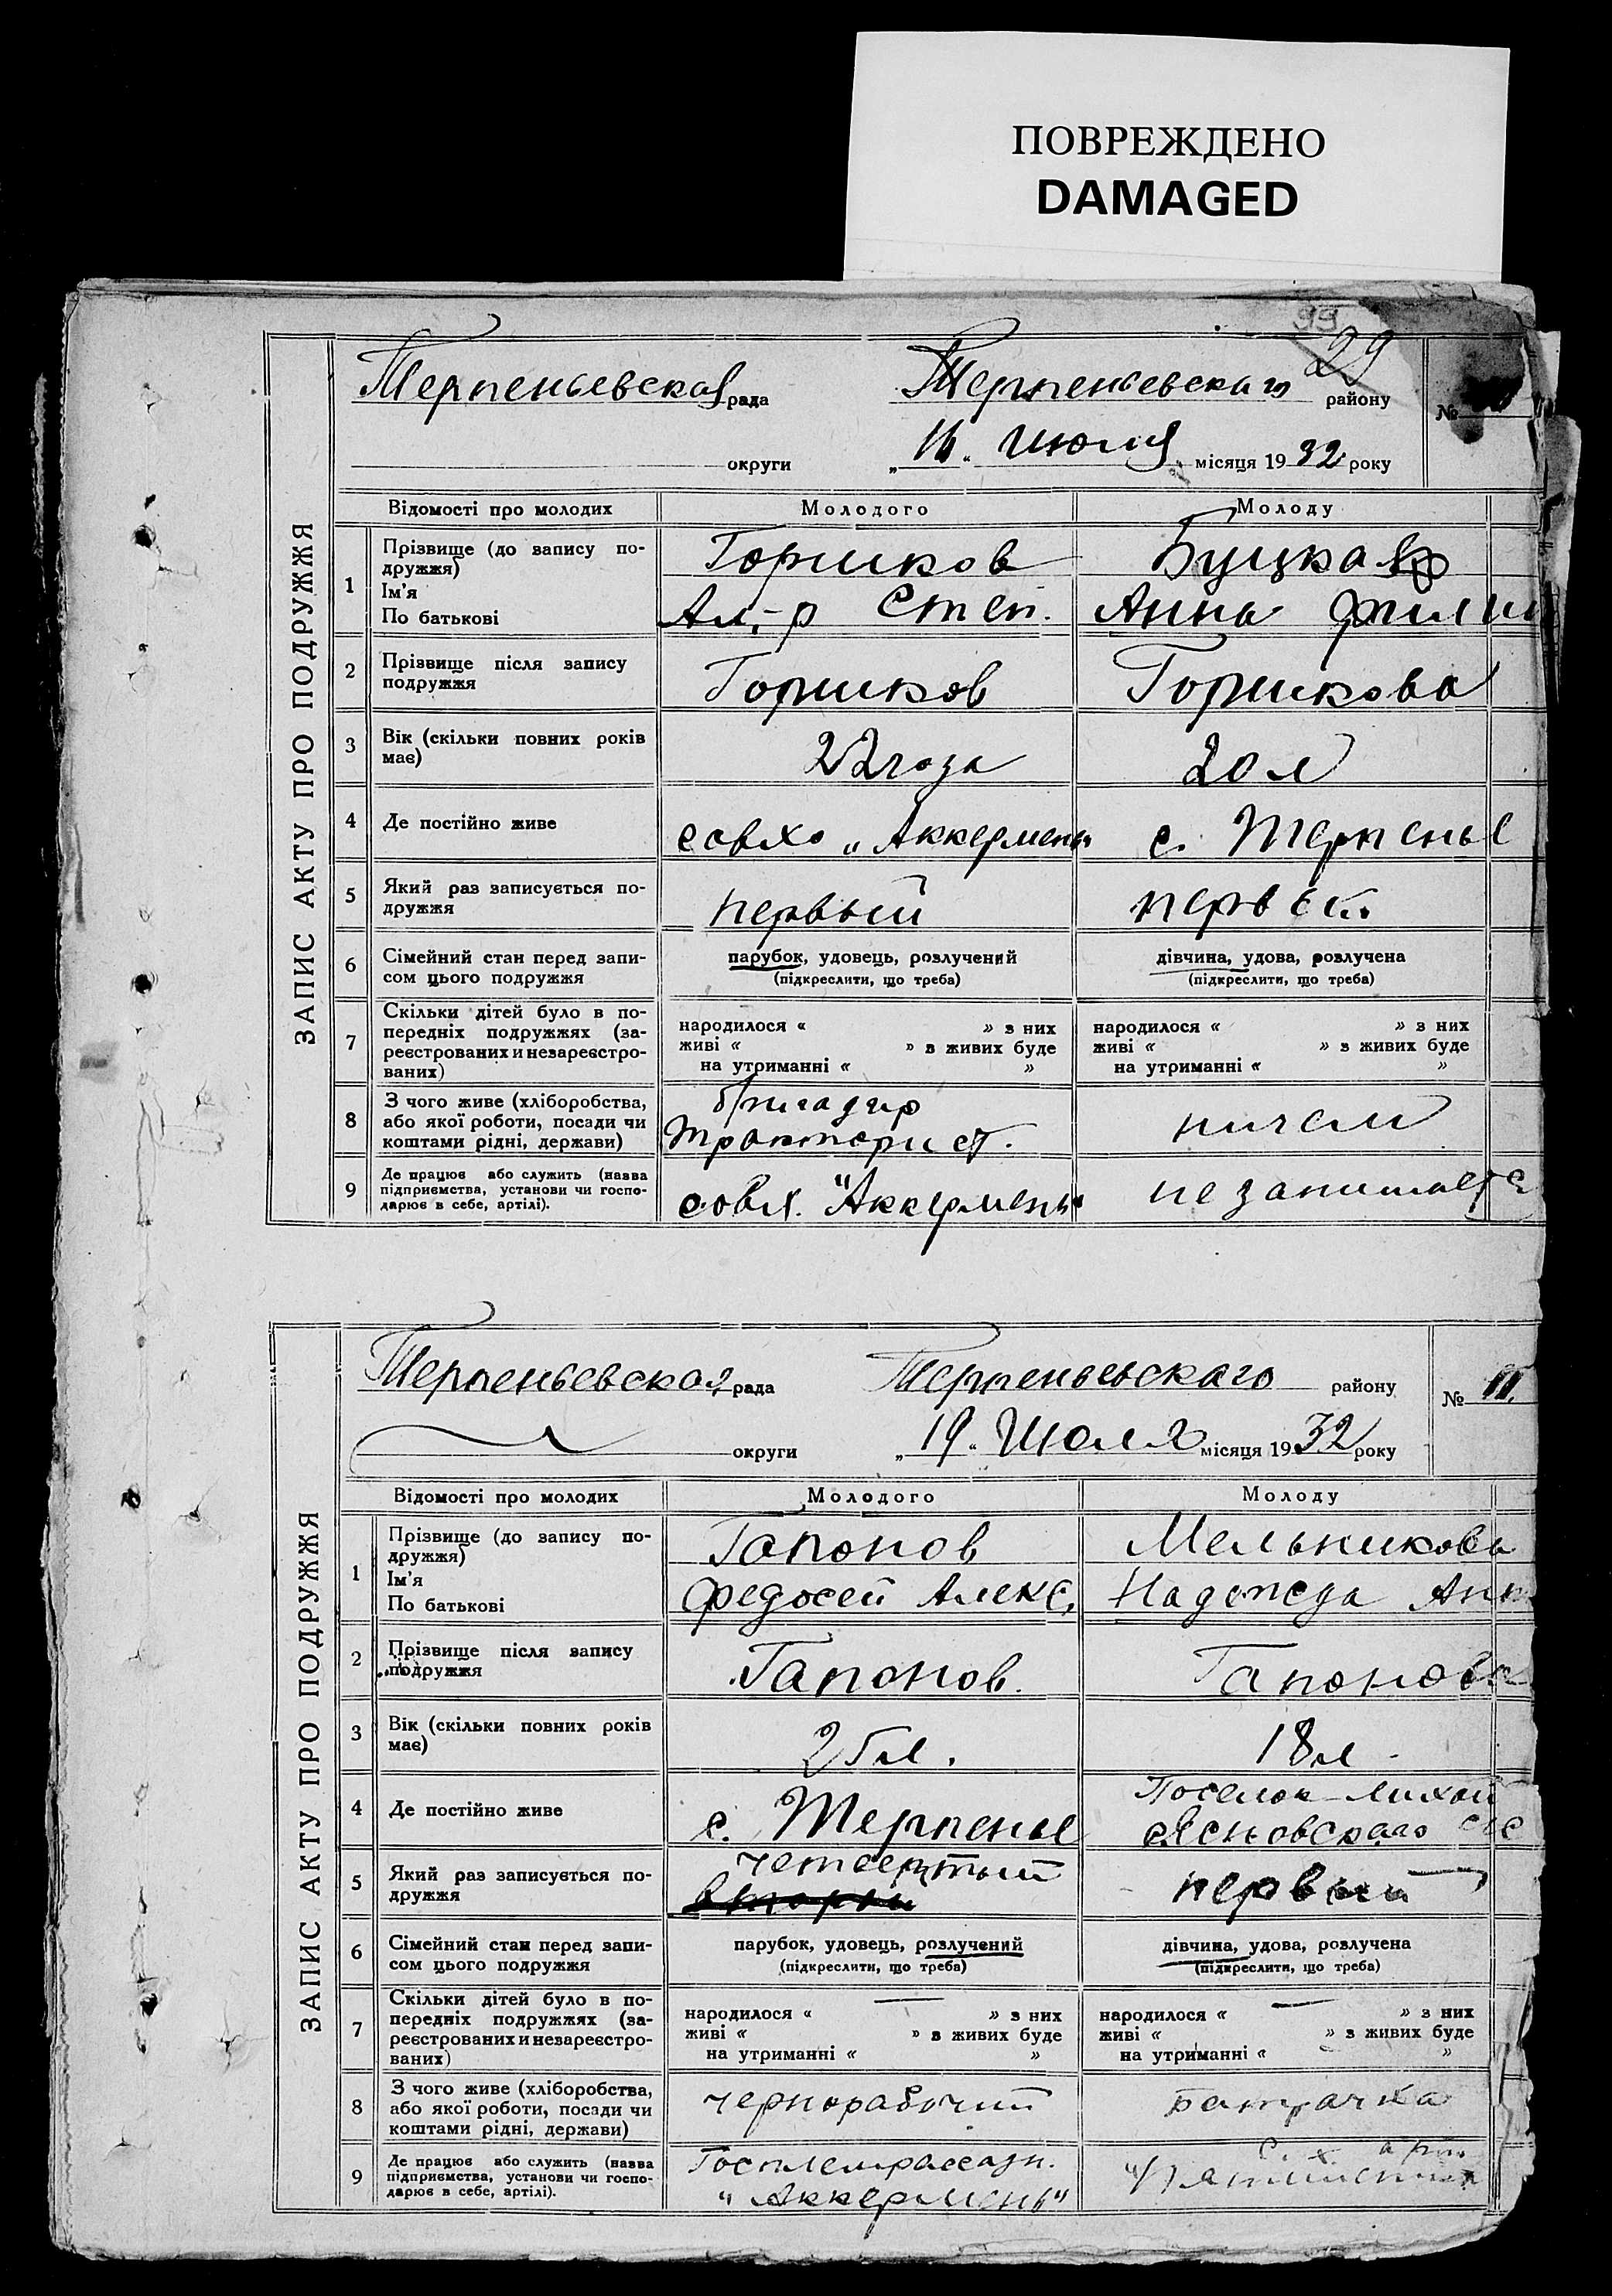 ПОВРЕЖДЕНО
DAMAGED
99
29
ЗАПИС АКТУ ПРО ПОДРУЖЖЯ
Терпеньевская рада Терпеньевскаго району №
округи „16“ июля місяця 1932 року
Відомості про молодих Молодого Молоду
1 Прізвище (до запису по- Горшков Буцкая
дружжя)
Ім'я
По батькові Ал-р Степ. Анна Филип
2 Прізвище після запису
подружжя Горшков Горшкова
3 Вік (скільки повних років
має) 22 года 20 л
4 Де постійно живе совхо „Аккермень“ с. Терпенье
5 Який раз записується по-
дружжя первый первый
6 Сімейний стан перед запи- парубок, удовець, розлучений дівчина, удова, розлучена
сом цього подружжя (підкреслити, що треба) (підкреслити, що треба)
7 Скільки дітей було в по-
передніх подружжях (за- народилося « » з них народилося « » з них
реєстрованих и незареєстро- живі « » в живих буде живі « » з живих буде
ваних) на утриманні « » на утриманні « »
8 З чого живе (хліборобства, бригадир
або якої роботи, посади чи ничем
коштами рідні, держави) Тракторист.
9 Де працює або служить (назва
підприємства, установи чи госпо- не занимаетс
дарює в себе, артілі). совх. "Аккермень"
ЗАПИС АКТУ ПРО ПОДРУЖЖЯ
Терпеньевская рада Терпеньевскаго району № 11.
округи „19“ Июля місяця 1932 року
Відомості про молодих Молодого Молоду
1 Прізвище (до запису по- Гапонов Мельникова
дружжя)
Ім'я
По батькові Федосей Алекс. Надежда Ант
2 Прізвище після запису
подружжя Гапонов. Гапонова
3 Вік (скільки повних років
має) 25 л. 18 л.
4 Поселок
Де постійно живе с. Терпенье Ясновскаго
5 Який раз записується по- четвертый
дружжя вторый первый
6 Сімейний стан перед запи- парубок, удовець, розлучений дівчина, удова, розлучена
сом цього подружжя (підкреслити, що треба) (підкреслити, що треба)
7 Скільки дітей було в по-
передніх подружжях (за- народилося « — » з них народилося « — » з них
реєстрованих и незареєстро- живі « » в живих буде живі « » з живих буде
ваних) на утриманні « » на утриманні « »
8 З чого живе (хліборобства,
або якої роботи, посади чи чернорабочий батрачка
коштами рідні, держави)
9 Де працює або служить (назва Госплемрассадн. с. х. арт.
підприємства, установи чи госпо-
дарює в себе, артілі). "Аккермень"